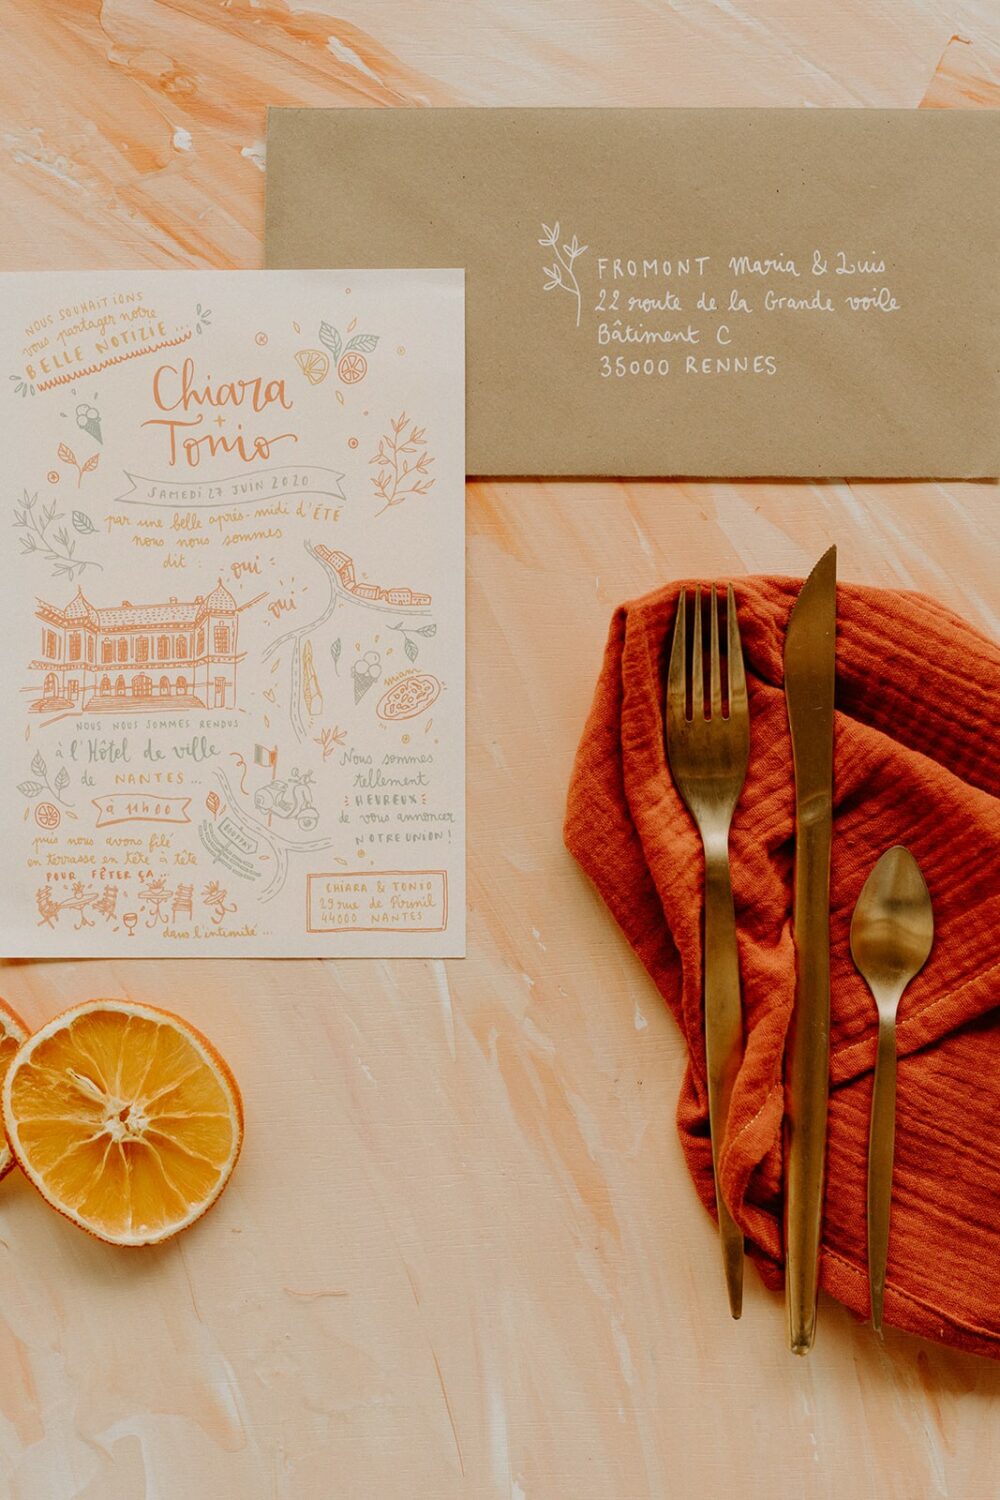 FROMONT Maria & Luis
22 route de la Grande voile
Bâtiment C
35000 RENNES
NOUS SOUHAITIONS
vous partager notre
BELLE NOTIZIE...
Chiara
+
Tonio
SAMEDI 27 JUIN 2020
par une belle après-midi d'ÉTÉ
nous nous sommes
dit :
oui
oui
miam
NOUS NOUS SOMMES RENDUS
à l'Hôtel de ville
de NANTES...
à 11h00
puis nous avons filé
en terrasse en tête à tête
POUR FÊTER ÇA...
dans l'intimité...
BOUFFAY
Nous sommes
tellement
HEUREUX
de vous annoncer
NOTRE UNION!
CHIARA & TONIO
29 rue de Pirmil
44000 NANTES